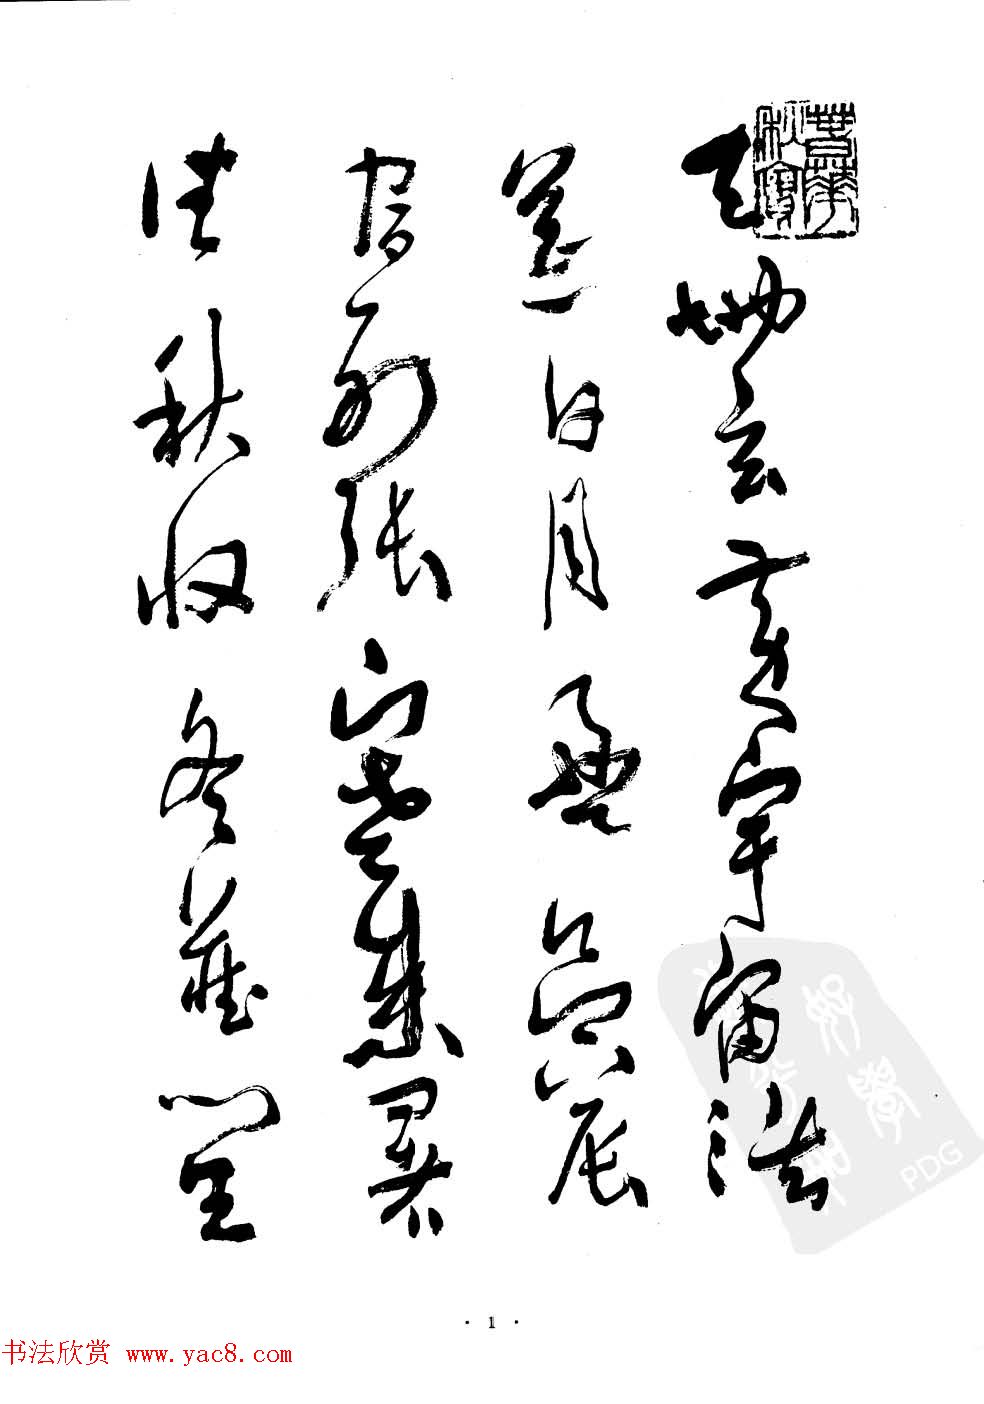 天地玄黃宇宙洪
荒日月盈昃辰
宿列張寒來暑
往秋收冬藏閏
PDG
· 1 ·
书法欣赏 www.yac8.com